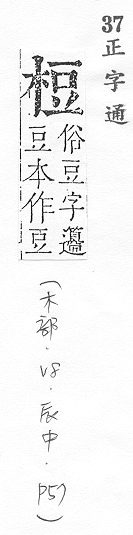 37正字通
桓
俗豆字籩
豆本作豆
(木部.V8.辰中.P57)